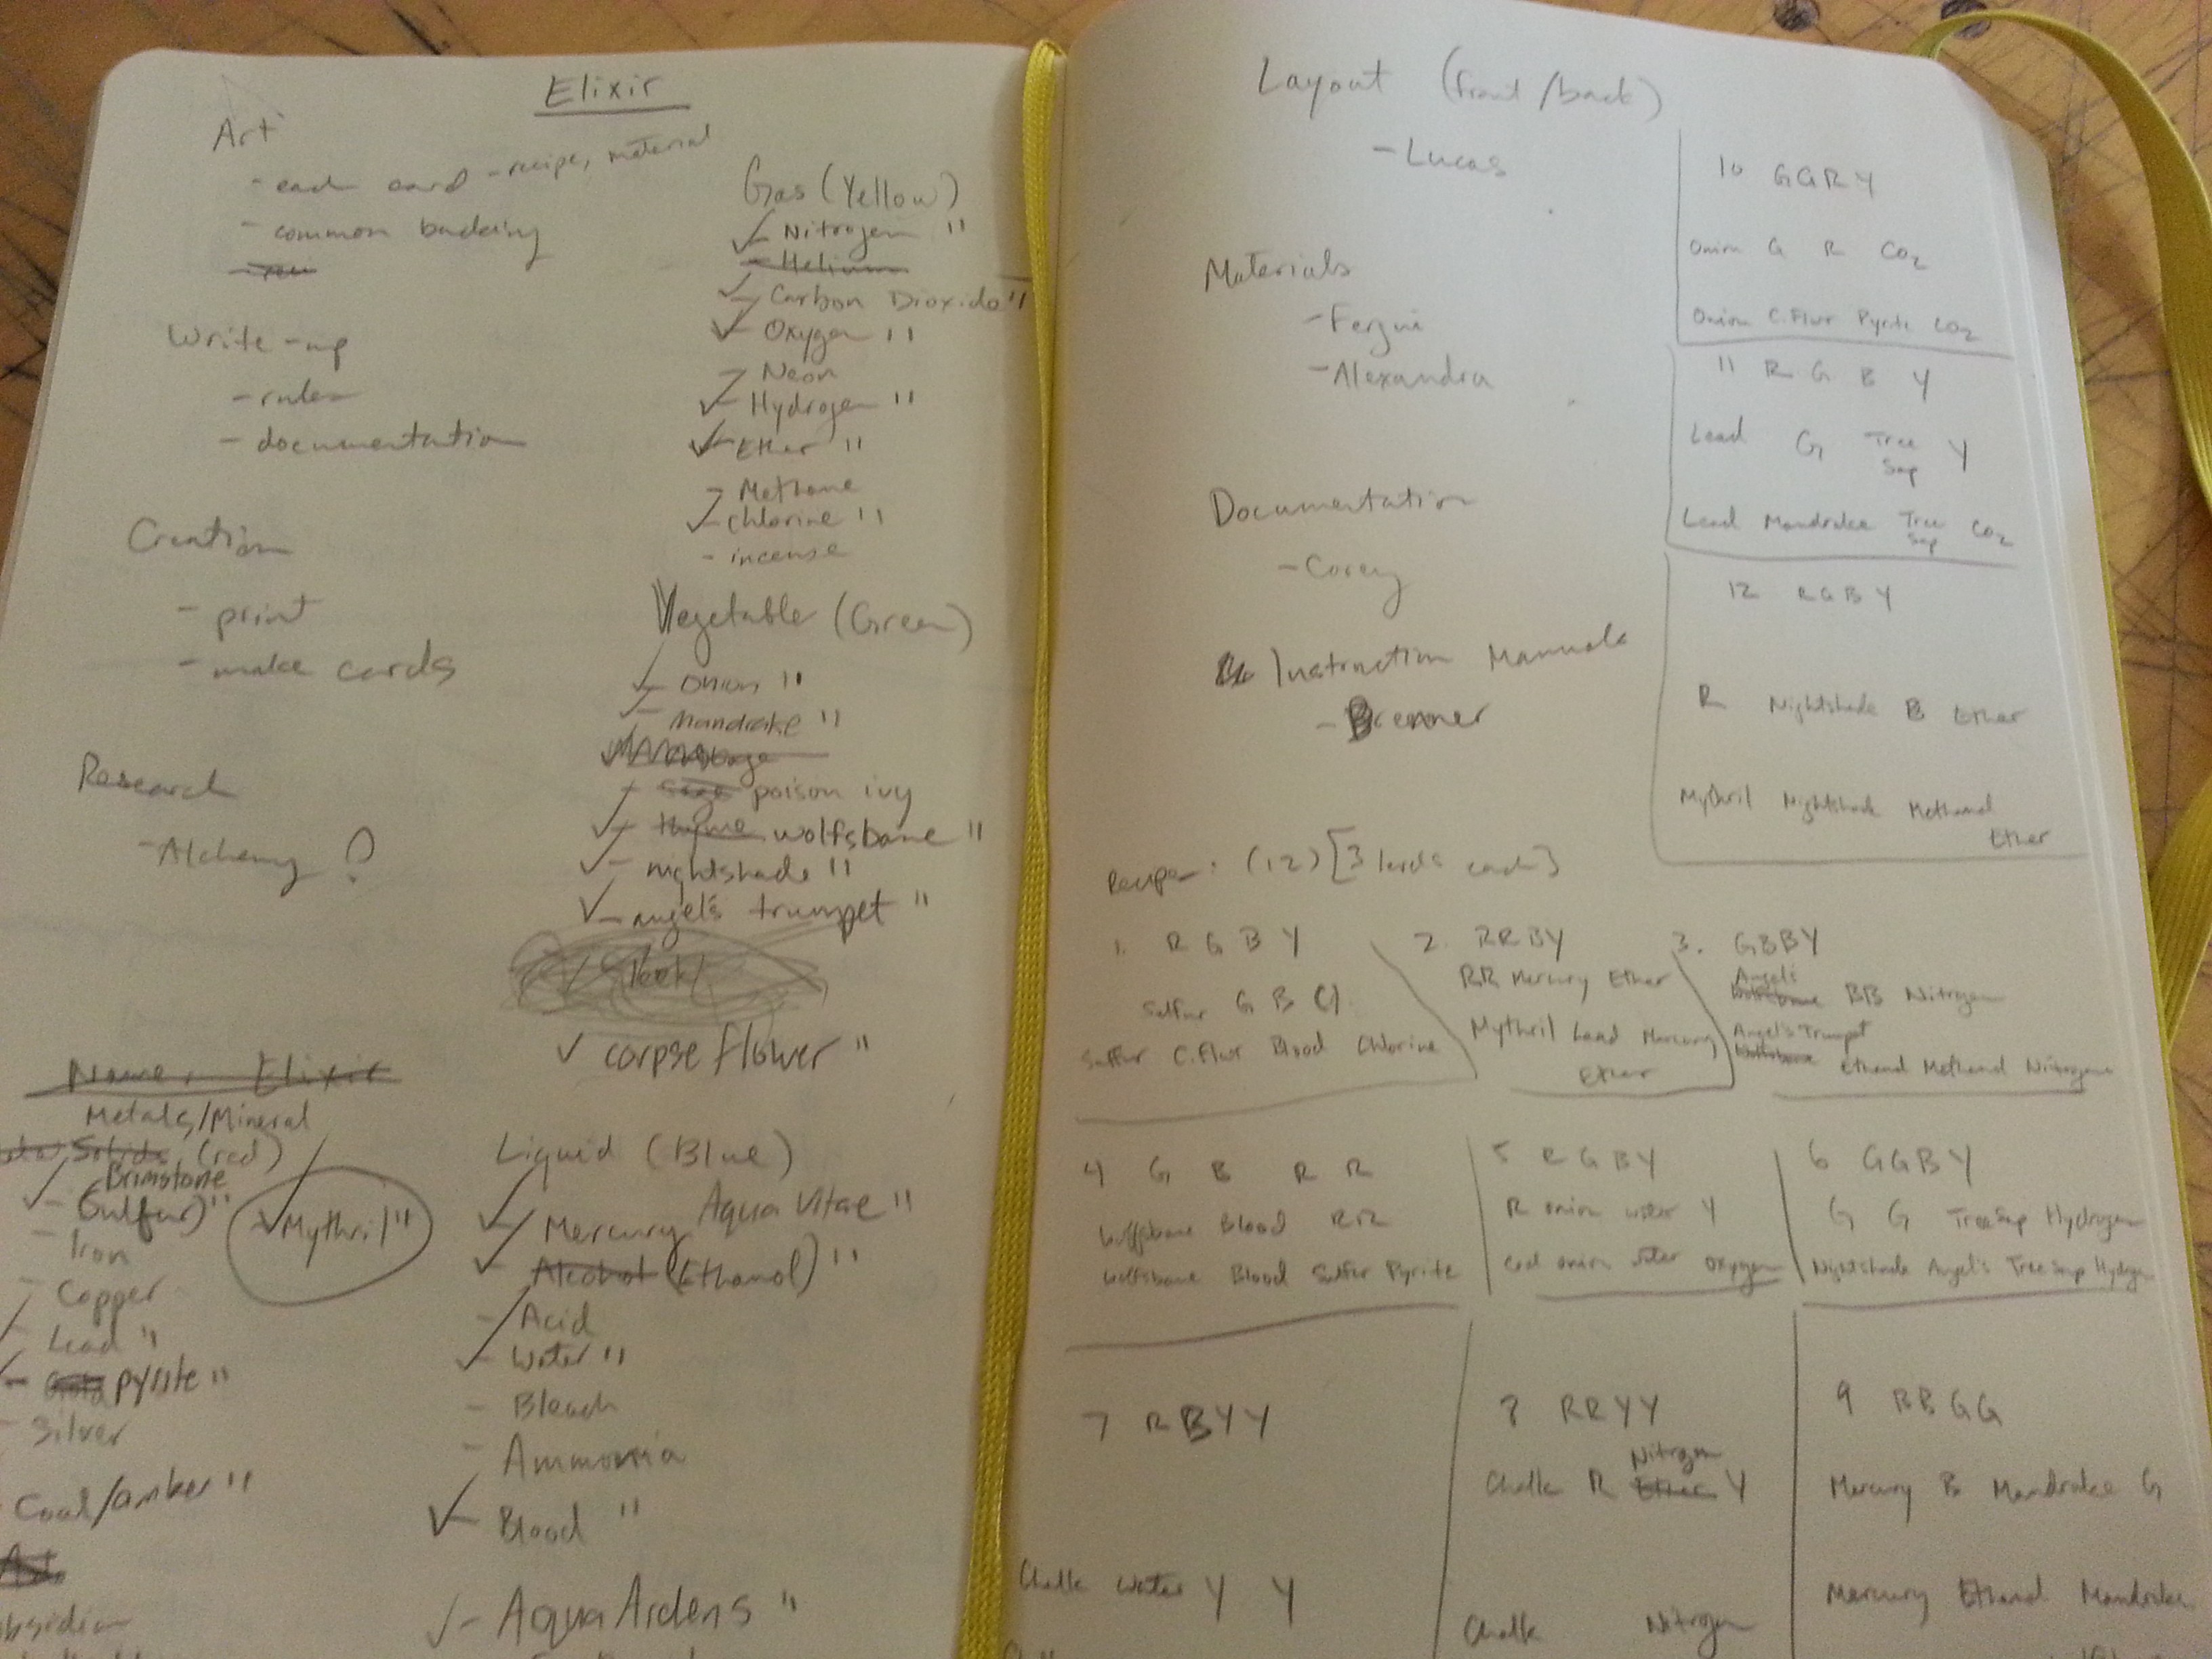 Elixir
Art
- each card - recipe, material
- common backing
Write-up
- rules
- documentation
Creation
- print
- make cards
Research
- Alchemy ?
Gas (Yellow)
✓- Nitrogen "
- Helium
✓- Carbon Dioxide "
✓- Oxygen "
- Neon
✓- Hydrogen "
✓- Ether "
- Methane
✓- Chlorine "
- incense
Vegetable (Green)
✓- Onion "
✓- Mandrake "
✓- Sage poison ivy
✓- thyme wolfsbane "
✓- nightshade "
✓- angel's trumpet "
✓ leek
✓ corpse flower "
Name: Elixir
Metals/Mineral
Solids (red)
Brimstone
✓- (Sulfur) "
✓ Mythril "
- Iron
- Copper
- Lead "
- pyrite "
- Silver
Coal/amber "
obsidian
Liquid (Blue)
Aqua Vitae "
✓- Mercury
✓- Alcohol (Ethanol) "
- Acid
✓- Water "
- Bleach
- Ammonia
✓- Blood "
✓- Aqua Ardens "
Layout (front/back)
- Lucas
Materials
- Alexandra
Documentation
- Corey
Instruction Manuals
- Brenner
Recipes: (12) [3 levels each]
1. R G B Y
Sulfur G B Cl
Sulfur C.Flwr Blood Chlorine
2. RRBY
RR Mercury Ether
Mythril Lead Mercury
Ether
3. GBBY
Angel's
Wolfsbane BB Nitrogen
Angel's Trumpet
Wolfsbane Ethanol Methanol Nitrogen
4 G B R R
Wolfsbane Blood RR
Wolfsbane Blood Sulfur Pyrite
5 R G B Y
R onion water Y
Coal onion water Oxygen
6 GGBY
G G Tree Sap Hydrogen
Nightshade Angel's Tree Sap Hydrogen
7 R B Y Y
Chalk Water Y Y
8 RRYY
Nitrogen
Chalk R Ether Y
Chalk Nitrogen
9 BBGG
Mercury B Mandrake G
Mercury Ethanol Mandrake
10 GGRY
Onion G R CO2
Onion C.Flwr Pyrite CO2
11 R G B Y
Lead G Tree Sap Y
Lead Mandrake Tree Sap CO2
12 RGBY
R Nightshade B Ether
Mythril Nightshade Methanol
Ether